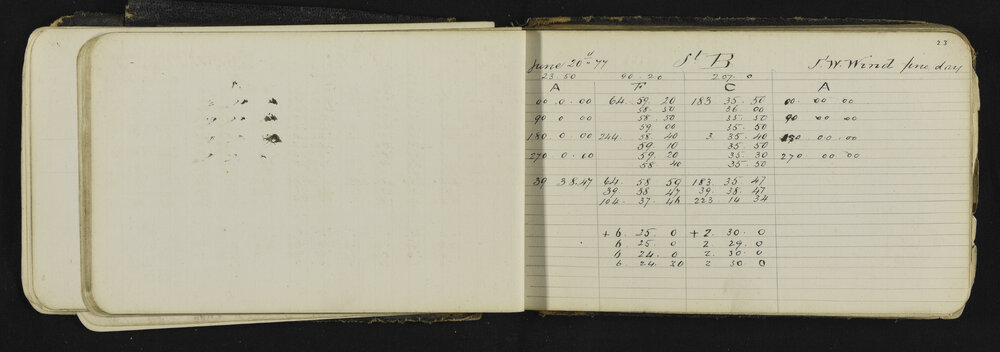 23
June 20" 77 St B S.W. Wind fine day
23.50 90.20 207.0
A F C A
00 0.00 64. 59. 20 183 35. 50 00 00 00
58 50 36 00
90 0 00 58. 50 35. 50 90 00 00
59 00 35. 50
180 0.00 244. 58 40 3 35. 40 180 00.00
59 10 35. 50
270 0.00 59. 20 35. 30 270 00.00
58 40 35. 50
39 38.47 64 58 59 183 35 47
39 38 47 39 38. 47
104. 37. 46 223 14 34
+6. 25. 0 +2. 30. 0
6 25. 0 2 29. 0
6 24. 0 2. 30. 0
6. 24. 30 2 30. 0